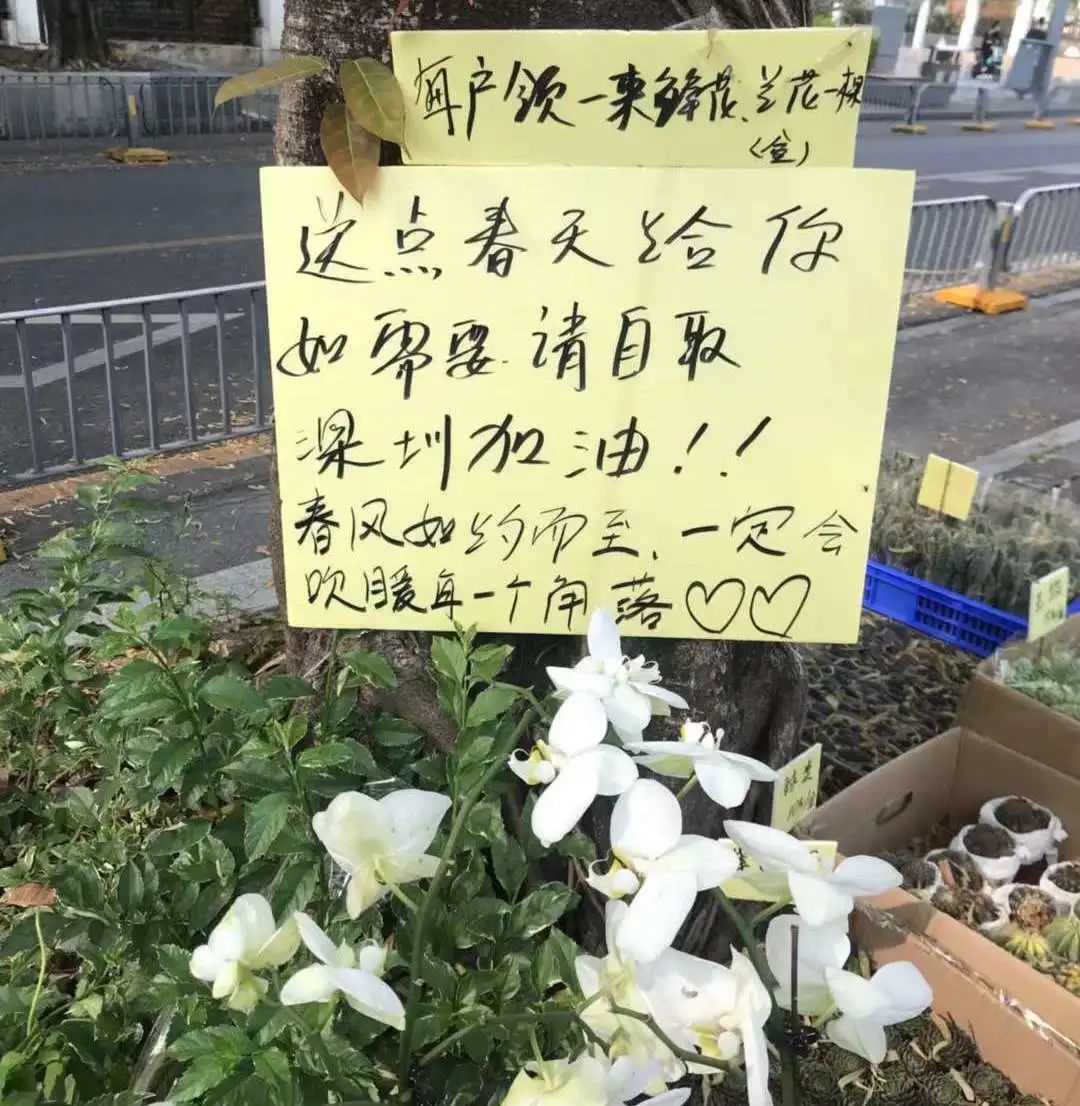 每户领一束鲜花、兰花一棵
(盆)
这点春天给你
如需要.请自取
深圳加油!!
春风如约而至.一定会
吹暖每一个角落♡♡